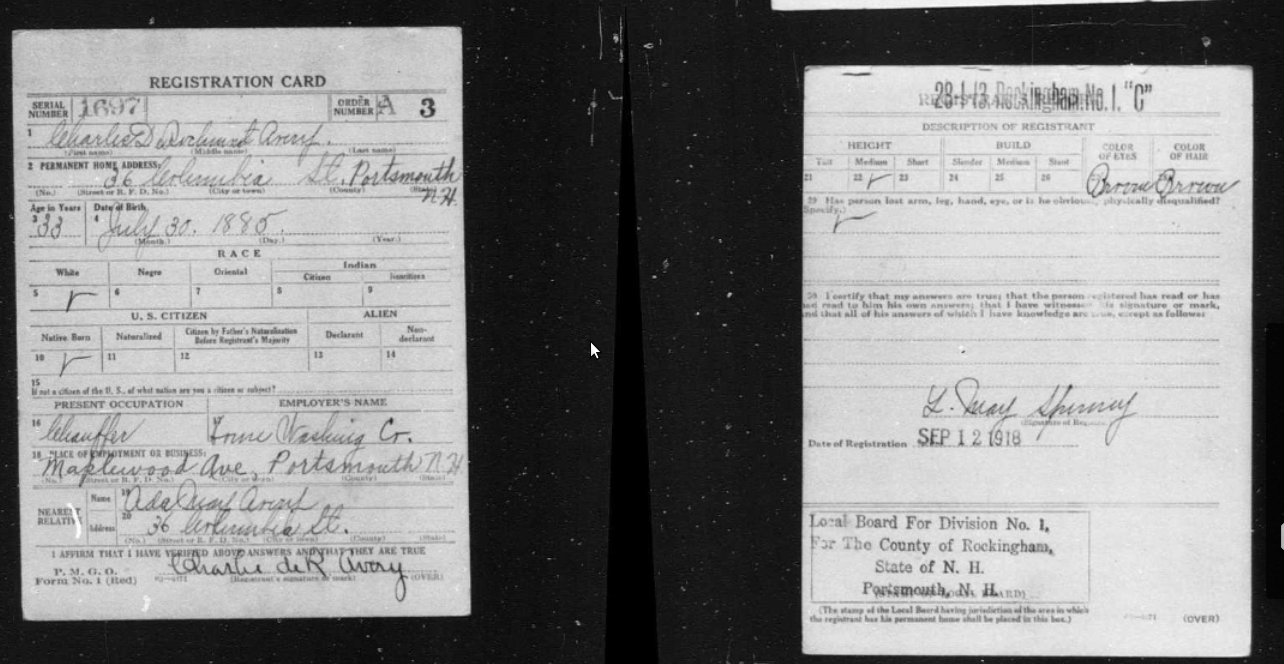 REGISTRATION CARD
SERIAL NUMBER 1697 ORDER NUMBER A 3
1 Charles D Avery.
(First name) (Middle name) (Last name)
2 PERMANENT HOME ADDRESS:
36 Columbia St. Portsmouth N.H.
(No.) (Street or R. F. D. No.) (City or town) (County) (State)
Age in Years Date of Birth
3 33 4 July 30. 1885.
(Month.) (Day.) (Year.)
RACE
White Negro Oriental Indian
Citizen Noncitizen
5 6 7 8 9
U. S. CITIZEN ALIEN
Native Born Naturalized Citizen by Father's Naturalization Before Registrant's Majority Declarant Non-declarant
10 11 12 13 14
15
If not a citizen of the U. S., of what nation are you a citizen or subject?
PRESENT OCCUPATION EMPLOYER'S NAME
16 Chauffer 17 Washing Co.
18 PLACE OF EMPLOYMENT OR BUSINESS:
Maplewood Ave, Portsmouth N.H.
(No.) (Street or R. F. D. No.) (City or town) (County) (State)
NEAREST RELATIVE Name 19 Ada May Avery
Address 20 36 Columbia St.
(No.) (Street or R. F. D. No.) (City or town) (County) (State)
I AFFIRM THAT I HAVE VERIFIED ABOVE ANSWERS AND THAT THEY ARE TRUE
P. M. G. O.
Form No. 1 (Red) Charlie deR Avery (OVER)
(Registrant's signature or mark)
28-1-13 Rockingham.No.1."C"
DESCRIPTION OF REGISTRANT
HEIGHT BUILD COLOR OF EYES COLOR OF HAIR
Tall Medium Short Slender Medium Stout
21 22 23 24 25 26 Brown Brown
29 Has person lost arm, leg, hand, eye, or is he obviously physically disqualified?
(Specify.)
30 I certify that my answers are true; that the person registered has read or has
had read to him his own answers; that I have witnessed his signature or mark,
and that all of his answers of which I have knowledge are true, except as follows:
L. May Spinney
Date of Registration SEP 12 1918
Local Board For Division No. 1,
For The County of Rockingham,
State of N. H.
Portsmouth, N. H.
(The stamp of the Local Board having jurisdiction of the area in which
the registrant has his permanent home shall be placed in this box.)
(OVER)